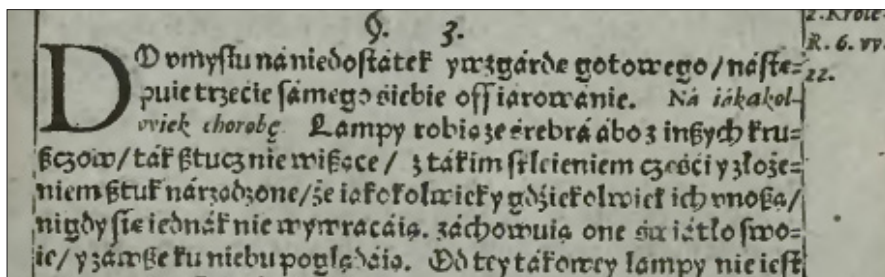 §. 3.
2. Krole.
DO vmysłu ná niedostátek y wzgárdę gotowego/ nástę=
R. 6. vy.
puie trzecie sámego siebie offiarowánie. Ná iákąkol-
22.
wiek chorobę. Lampy robią ze śrebrá ábo z inßych kru=
ßczow/ ták ßtucznie wißące/ z tákim spleieniem części y złoże=
niem ßtuk nárządzone/ że iákokolwiek y gdźiekolwiek ich vnoßą/
nigdy się iednák nie wywracáią. záchowuią one świátło swo=
ie/ y záwße ku niebu poglądáią. Od tey tákowey lampy nie iest